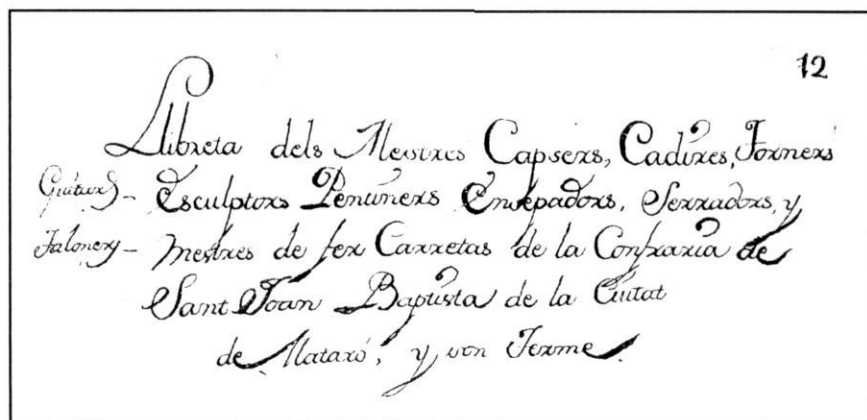 12
Llibreta dels Mestres Capsers, Cadires, Torners
Guitarrs - Esculptors Pentiners Ensepadors, Serradors, y
Taloners - mestres de fer Carretas de la Confraria de
Sant Joan Baptista de la Ciutat
de Mataró, y son Terme